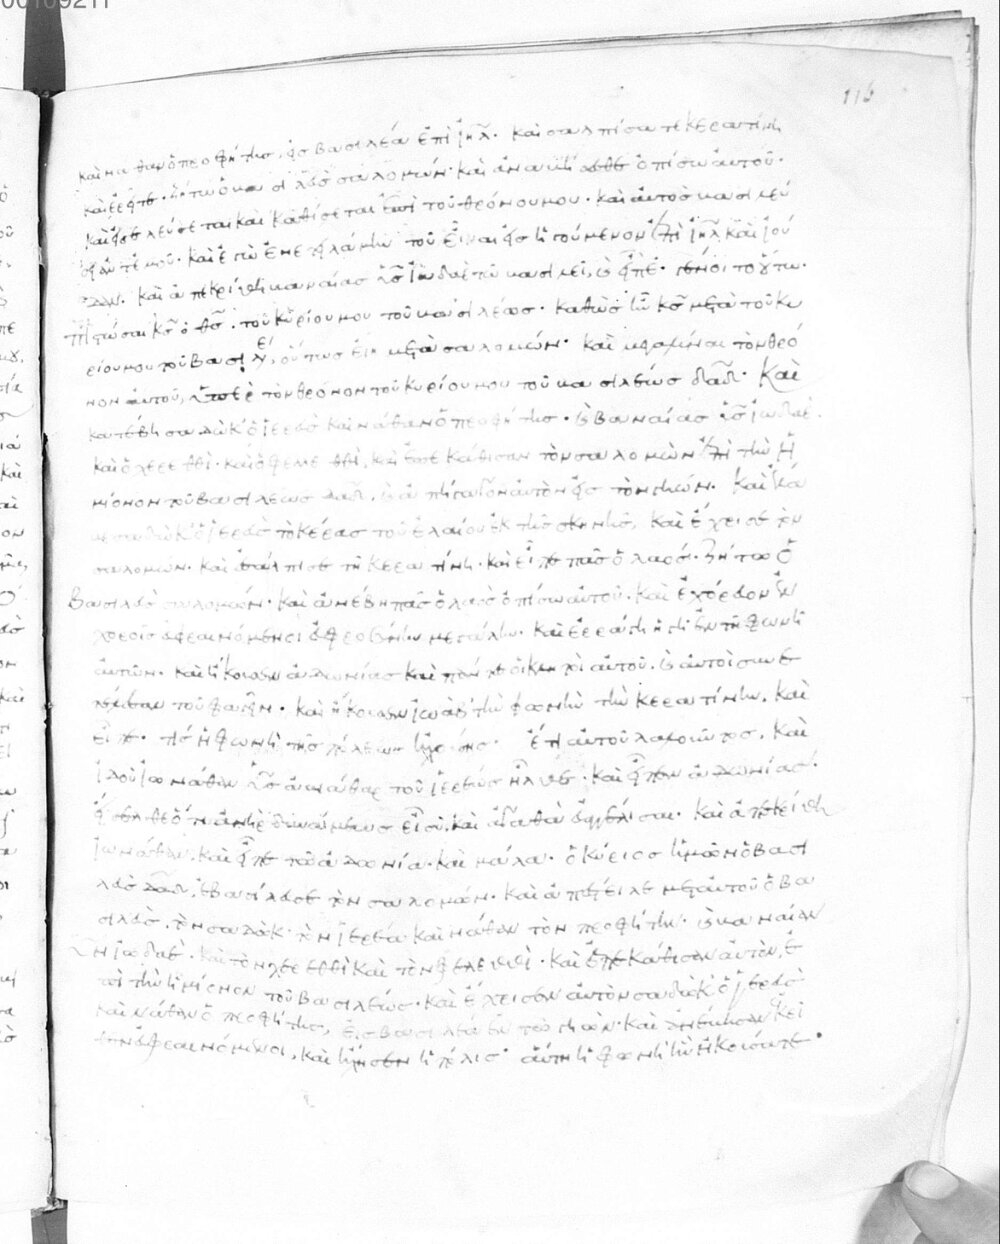 καὶ νάθαν ὁ προφήτης, εἰς βασιλέα ἐπὶ ἰηλ. καὶ σαλπίσατε κερατίνη
καὶ ἐρεῖτε. ζήτω ὁ βασιλεὺς σαλομών. καὶ ὀπίσω αὐτοῦ.
καὶ εἰσελεύσεται καὶ καθίσεται ἐπὶ τοῦ θρόνου μου. καὶ αὐτὸς βασιλεύ
σει ἀντ' ἐμοῦ. καὶ ἐγὼ ἐνετειλάμην τοῦ εἶναι εἰς ἡγούμενον ἐπὶ ἰηλ καὶ ἰού
δαν. καὶ ἀπεκρίθη βαναίας υς ἰωδαὲ τῶ βασιλεῖ, καὶ εἶπε. γένοιτο οὕτω.
πιστώσαι κς ὁ θς. τοῦ κυρίου μου τοῦ βασιλέως. καθὼς ἦν κς μετὰ τοῦ κυ
ρίου μου τοῦ βασιλέ, οὕτως εἴη μετὰ σαλομών. καὶ μεγαλύναι τὸν θρό
νον αὐτοῦ, ὑπὲρ τὸν θρόνον τοῦ κυρίου μου τοῦ βασιλέως δαδ. καὶ
κατέβη σαδὼκ ὁ ἱερεὺς καὶ νάθαν ὁ προφήτης. καὶ βαναίας υς ἰωδαὲ.
καὶ ὁ χερεθθὶ. καὶ ὁ φελεθθὶ, καὶ ἐπεκάθισαν τὸν σαλομὼν ἐπὶ τὴν ἡ
μίονον τοῦ βασιλέως δαδ, καὶ ἀπήγαγον αὐτὸν εἰς τὸν γιών. καὶ ἔλα
βε σαδὼκ ὁ ἱερεὺς τὸ κέρας τοῦ ἐλαίου ἐκ τῆς σκηνῆς, καὶ ἔχρισε τὸν
σαλομών. καὶ ἐσάλπισε τῆ κερατίνη. καὶ εἶπε πᾶς ὁ λαός. ζήτω ὁ
βασιλεὺς σαλομών. καὶ ἀνέβη πᾶς ὁ λαὸς ὀπίσω αὐτοῦ. καὶ ἐχόρευον ἐν
χοροῖς εὐφραινόμενοι εὐφροσύνην μεγάλην. καὶ ἐρράγη ἡ γῆ ἐν τῆ φωνῆ
αὐτῶν. καὶ ἤκουσεν ἀδωνίας καὶ πάντες οἱ κλητοὶ αὐτοῦ. καὶ αὐτοὶ συνε
τέλεσαν τοῦ φαγεῖν. καὶ ἤκουσεν ἰωὰβ τὴν φωνὴν τὴν κερατίνην. καὶ
εἶπε. τίς ἡ φωνὴ τῆς πόλεως ἠχούσης. ἔτι αὐτοῦ λαλοῦντος. καὶ
ἰδοὺ ἰωνάθαν υς ἀβιάθαρ τοῦ ἱερέως ἦλθε. καὶ εἶπεν ἀδωνίας.
εἴσελθε ὅτι ἀνὴρ δυνάμεως εἶ σύ, καὶ ἀγαθὰ εὐαγγέλισαι. καὶ ἀπεκρίθη
ἰωνάθαν, καὶ εἶπε τῶ ἀδωνία. καὶ μάλα. ὁ κύριος ἡμῶν ὁ βασι
λεὺς δαδ, ἐβασίλευσε τὸν σαλομών. καὶ ἀπέστειλε μετ' αὐτοῦ ὁ βα
σιλεὺς, τὸν σαδὼκ τὸν ἱερέα καὶ νάθαν τὸν προφήτην. καὶ βαναίαν
υν ἰωδαὲ. καὶ τὸν χερεθθὶ καὶ τὸν φελεθθὶ. καὶ ἐπεκάθισαν αὐτὸν, ἐ
πὶ τὴν ἡμίονον τοῦ βασιλέως. καὶ ἔχρισεν αὐτὸν σαδὼκ ὁ ἱερεὺς
καὶ νάθαν ὁ προφήτης, εἰς βασιλέα ἐν τῶ γιών. καὶ ἀνέβησαν ἐκεῖ
θεν εὐφραινόμενοι, καὶ ἤχησεν ἡ πόλις. αὕτη ἡ φωνὴ ἣν ἠκούσατε.